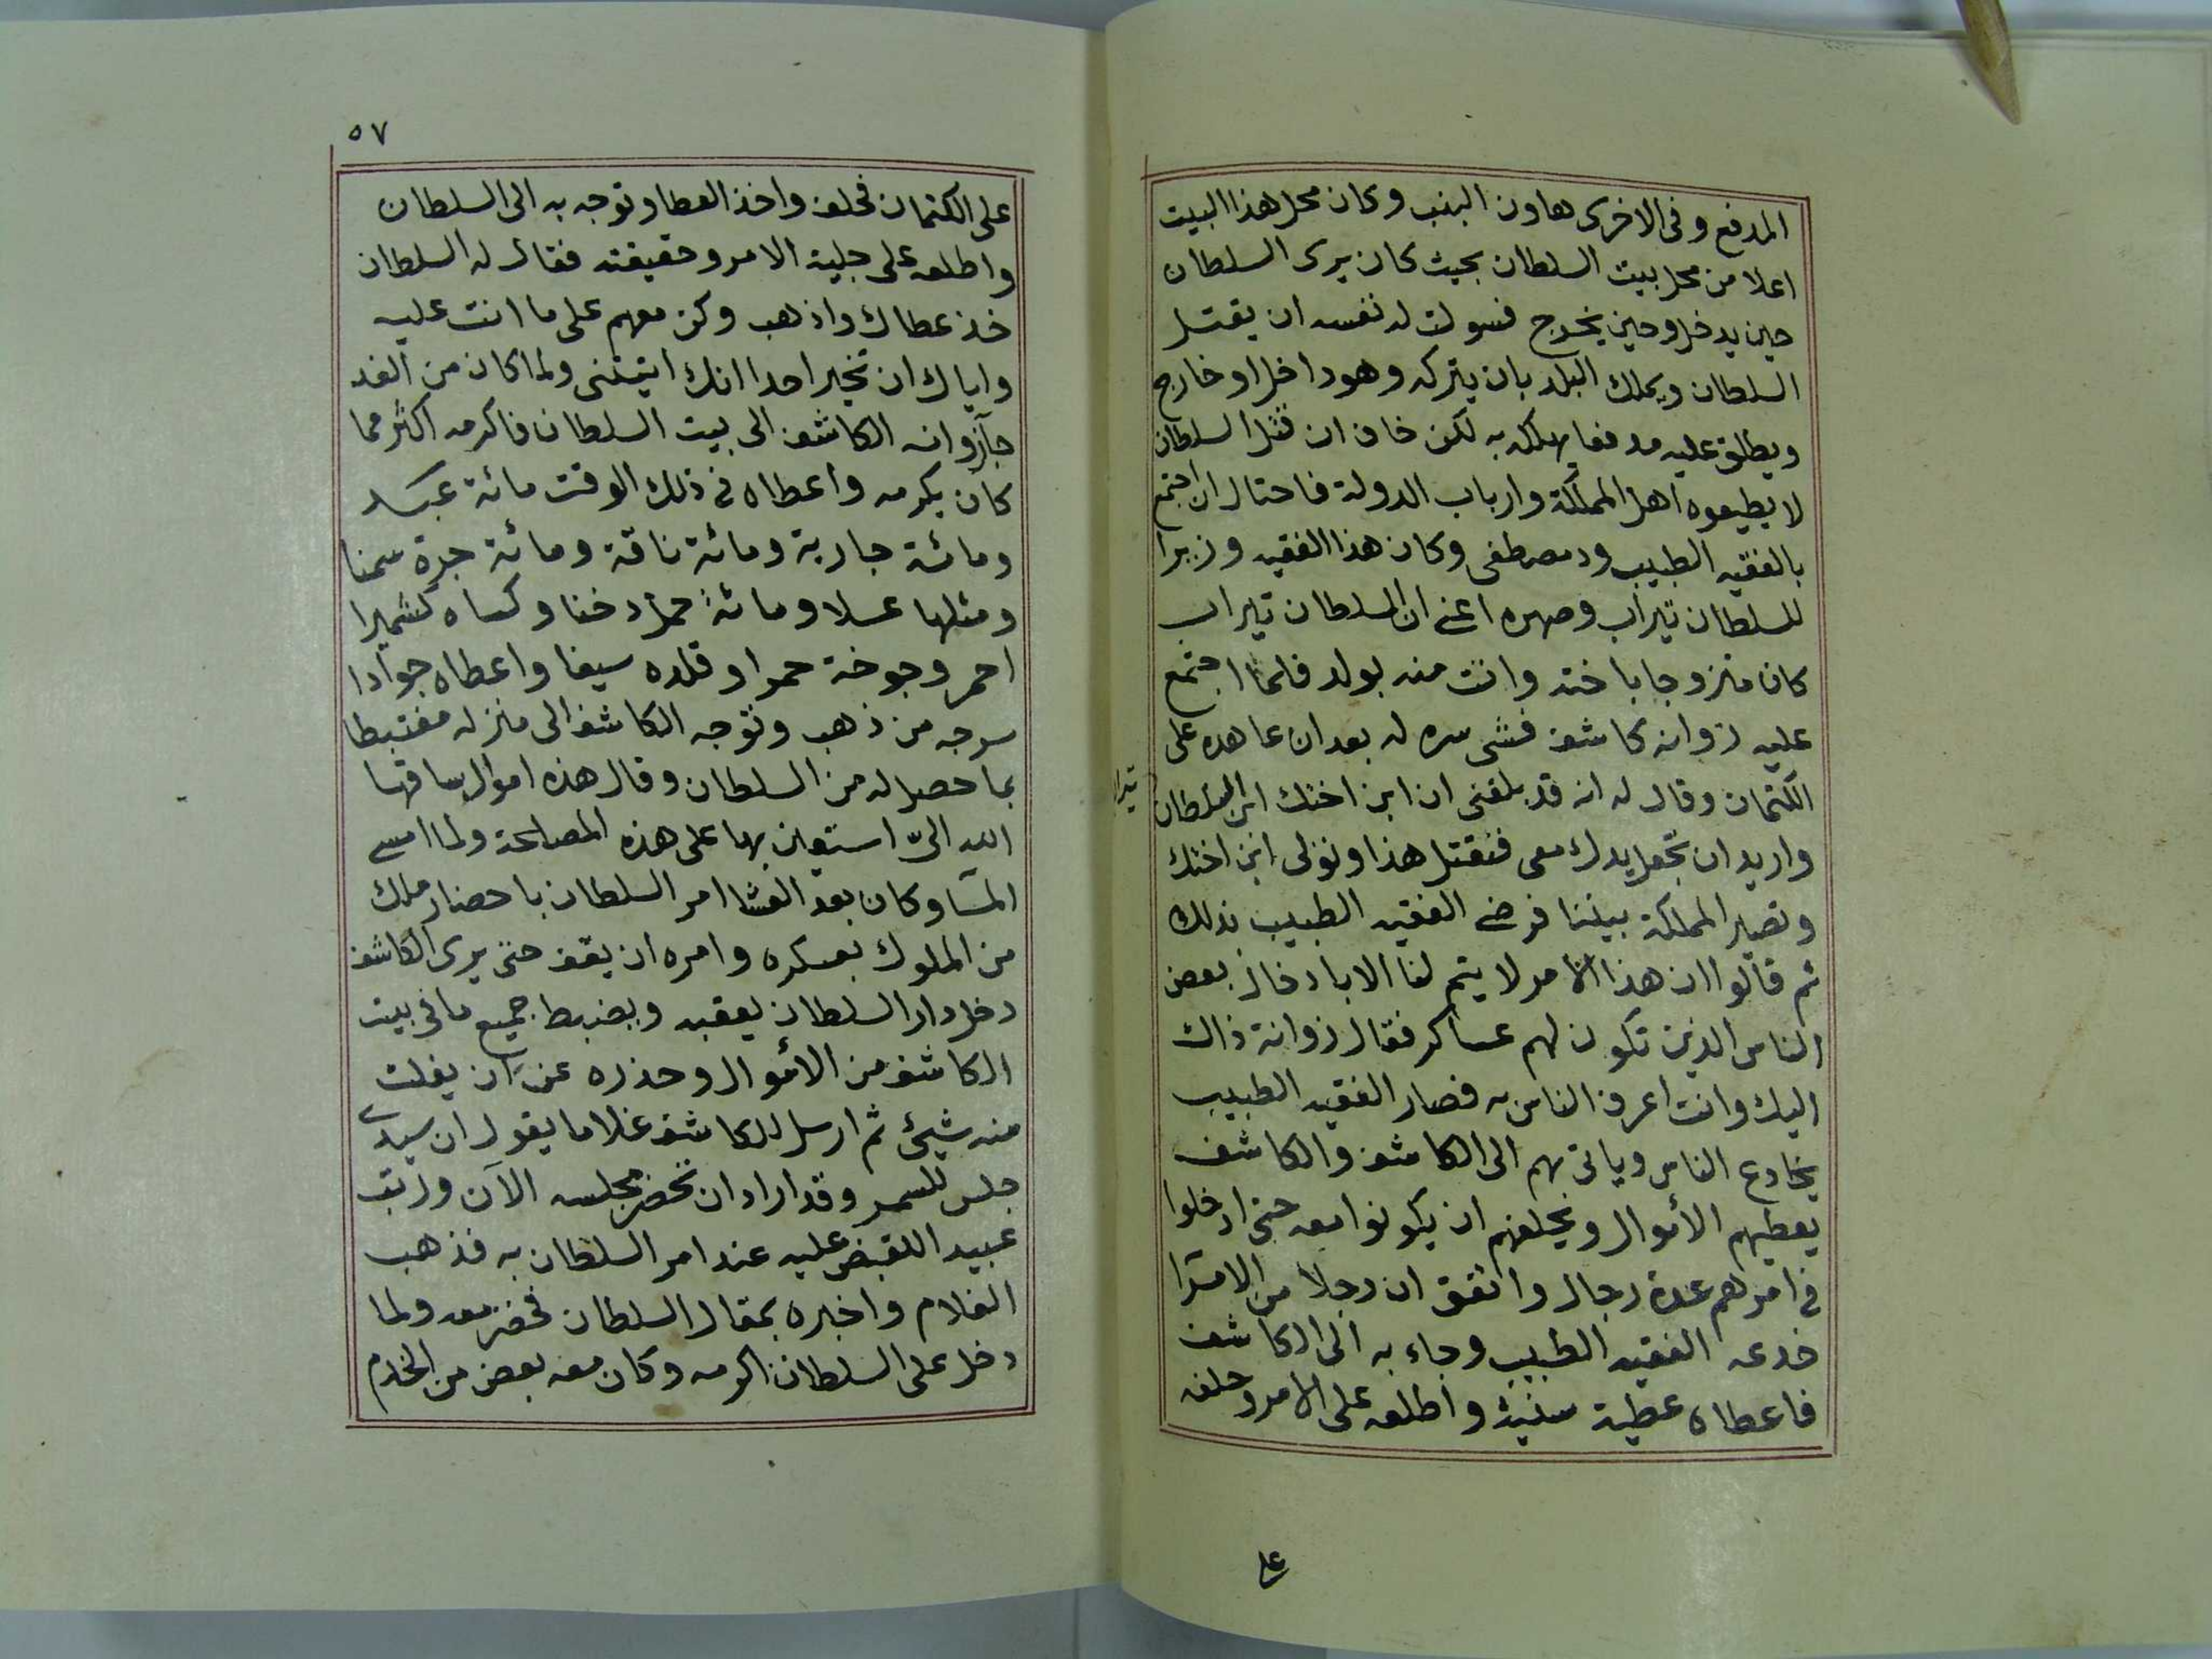 المدفع وفى الاخرى هاون البنب وكان محل هذا البيت
اعلا من محل بيت السلطان بحيث كان يرى السلطان
حين يدخل وحين يخرج فسولت له نفسه ان يقتل
السلطان ويملك البلد بان يتركه وهو داخل او خارج
ويطلق عليه مدفعا يهلكه به لكن خاف ان قتل السلطان
لا يطيعوه اهل المملكة وارباب الدولة فاحتال ان اجتمع
بالفقيه الطبيب ود مصطفى وكان هذا الفقيه وزيرا
للسلطان تيراب وصهره اعنى ان السلطان تيراب
كان متزوجا باخته واتت منه بولد فلما اجتمع
عليه زوانه كاشف فشى سره له بعد ان عاهده على
الكتمان وقال له انه قد بلغنى ان ابن اختك ابن السلطان
تيراب
واريد ان تجعل يدك معى فنقتل هذا ونولى ابن اختك
وتصير المملكة بيننا فرضى الفقيه الطبيب بذلك
ثم قالوا ان هذا الامر لا يتم لنا الا بادخال بعض
الناس الذين تكون لهم عساكر فقال زوانة ذاك
اليك وانت اعرف الناس به فصار الفقيه الطبيب
يخادع الناس وياتى بهم الى الكاشف والكاشف
يعطيهم الأموال ويحلفهم ان يكونوا معه حتى ادخلوا
فى امرهم عدة رجال واتفق ان رجلا من الامرا
خدعه الفقيه الطبيب وجاء به الى الكاشف
فاعطاه عطية سنية واطلعه على الامر وحلفه
على
٥٧
على الكتمان فحلف واخذ العطا وتوجه به الى السلطان
واطلعه على جلية الامر وحقيقته فقال له السلطان
خذ عطاك واذهب وكن معهم على ما انت عليه
واياك ان تخبر احدا انك اتيتنى ولما كان من الغد
جآ زوانه الكاشف الى بيت السلطان فاكرمه اكثر مما
كان يكرمه واعطاه فى ذلك الوقت مائة عبد
ومائة جارية ومائة ناقة ومائة جرة سمنا
ومثلها عسلا ومائة حمل دخنا وكساه كشميرا
احمر وجوخة حمرا وقلده سيفا واعطاه جوادا
سرجه من ذهب وتوجه الكاشف الى منزله مغتبطا
بما حصل له من السلطان وقال هذه اموال ساقها
الله الىّ استعين بها على هذه المصلحة ولما امسى
المسآ وكان بعد العشا امر السلطان باحضار ملك
من الملوك بعسكره وامره ان يقف حتى يرى الكاشف
دخل دار السلطان يعقبه ويضبط جميع ما فى بيت
الكاشف من الأموال وحذره عن ان يفلت
منه شيئ ثم ارسل للكاشف غلاما يقول ان سيدى
جلس للسمر وقد اراد ان تحضر مجلسه الآن ورتب
عبيدا للقبض عليه عند امر السلطان به فذهب
الغلام واخبره بمقال السلطان فحضر معه ولما
دخل على السلطان اكرمه وكان معه بعض من الخدم